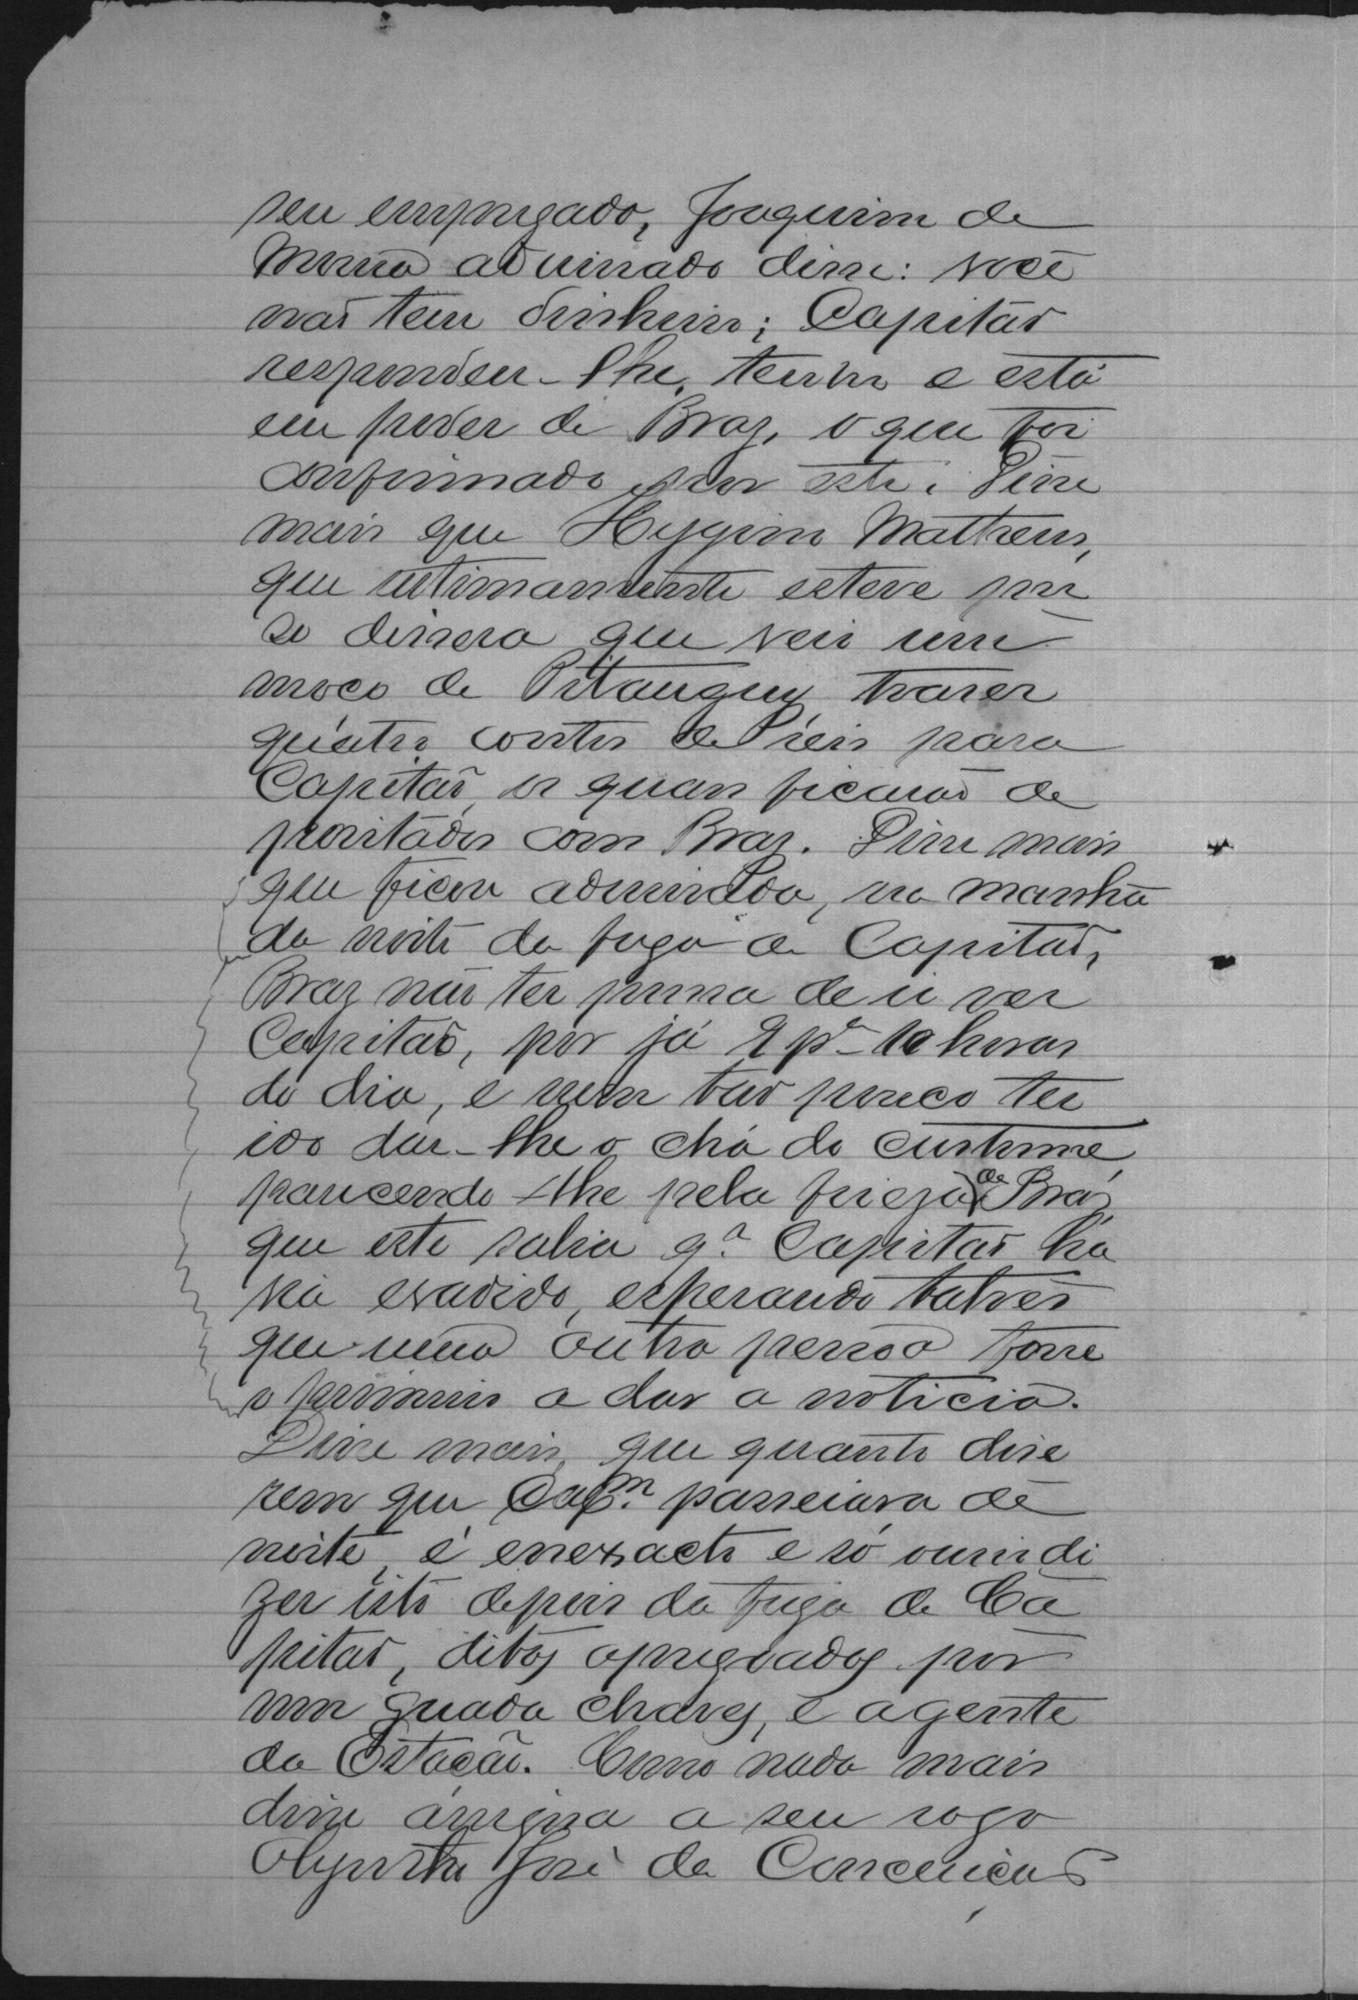 seu empregado, Joaquim de
Moura admirado disse: você
não tem dinheiro; Capitão
respondeu-lhe, tenho e está
em poder de Braz, o que foi
confirmado por este. Disse
mais que Hygino Matheus,
que ultimamente esteve pre
so dissera que veio um
moço de Pitanguy trazer
quatro contos de reis para
Capitão, os quaes ficarão de
positados com Braz. Disse mais
que ficou admirado, na manhã
da noite da fuga de Capitão,
Braz não ter pressa de ir ver
Capitão, por já 9 pª 10 horas
do dia, e nem tão pouco ter
ido dar-lhe o chá do custume,
parecendo-lhe pela frieza de Braz
que este sabia q.e Capitão ha
via evadido, esperando talves
que uma outra pessoa fosse
o primeiro a dar a noticia.
Disse mais, que quanto dise
rem que Capm. passeiava de
noite, é enexacto e só ouvi di
zer isto depois da fuga de Ca
pitão, ditos apregoados por
um guada chaves, e agente
da Estação. Como nada mais
disse assigna a seu rogo
Olyntho José da Conceição